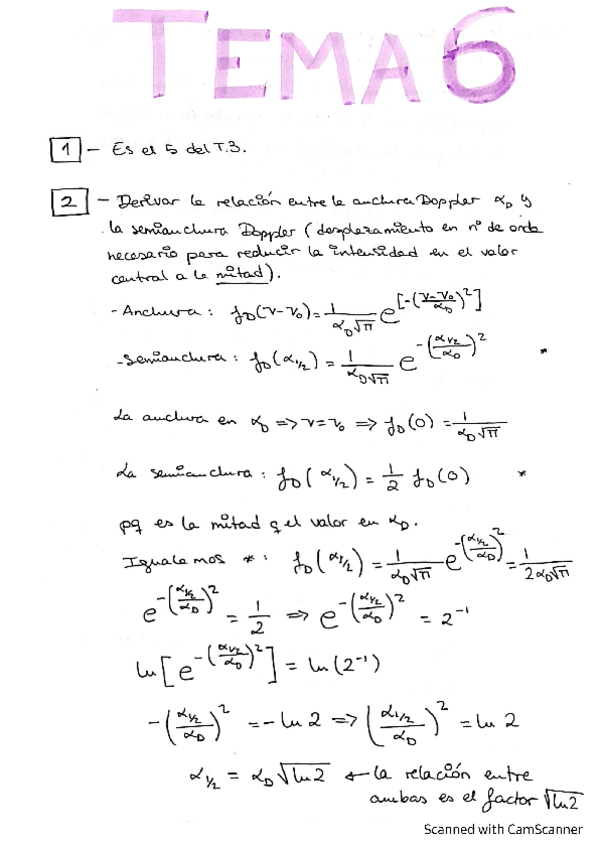 TEMA 6
1 - Es el 5 del T.3.
2 - Derivar la relación entre la anchura Doppler α_D y
la semianchura Doppler (desplazamiento en nº de onda
necesario para reducir la intensidad en el valor
central a la mitad).
- Anchura: f_D(ν-ν_0) = 1/(α_D√π) e^[-((ν-ν_0)/α_D)^2]
- Semianchura: f_D(α_1/2) = 1/(α_D√π) e^-(α_1/2/α_D)^2 *
La anchura en α_D => ν=ν_0 => f_D(0) = 1/(α_D√π)
La semianchura: f_D(α_1/2) = 1/2 f_D(0) *
pq es la mitad q el valor en α_D.
Igualamos *: f_D(α_1/2) = 1/(α_D√π) e^-(α_1/2/α_D)^2 = 1/(2α_D√π)
e^-(α_1/2/α_D)^2 = 1/2 => e^-(α_1/2/α_D)^2 = 2^-1
ln[e^-(α_1/2/α_D)^2] = ln(2^-1)
-(α_1/2/α_D)^2 = -ln 2 => (α_1/2/α_D)^2 = ln 2
α_1/2 = α_D√ln2 ← la relación entre
ambas es el factor √ln2
Scanned with CamScanner